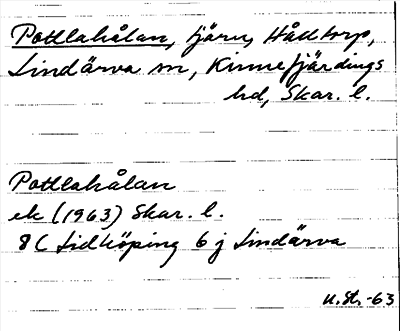 Pottlahålan, tjärn, Hålltorp,
Lindärva sn, Kinnefjärdings
hd, Skar. l.
Pottlahålan
ek (1963) Skar. l.
8C Lidköping 6j Lindärva
U.St.-63